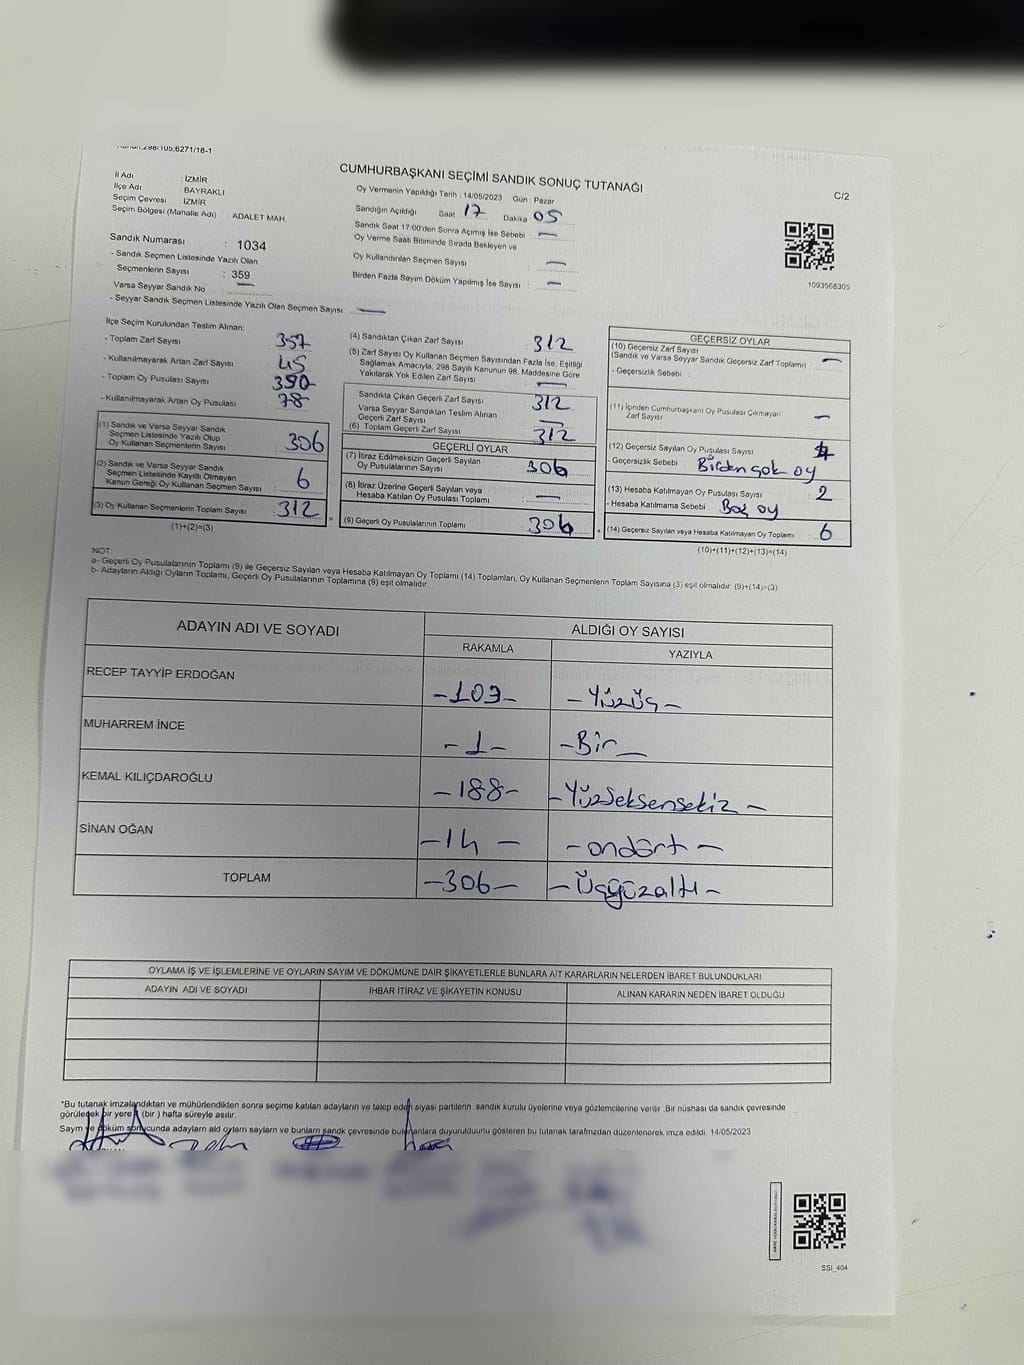 298/105;6271/18-1
CUMHURBAŞKANI SEÇİMİ SANDIK SONUÇ TUTANAĞI
C/2
İl Adı : İZMİR
İlçe Adı : BAYRAKLI
Seçim Çevresi : İZMİR
Seçim Bölgesi (Mahalle Adı) : ADALET MAH.
Oy Vermenin Yapıldığı Tarih : 14/05/2023 Gün : Pazar
Sandığın Açıldığı Saat 17 Dakika 05
Sandık Saat 17:00'den Sonra Açımış İse Sebebi : —
Oy Verme Saati Bitiminde Sırada Bekleyen ve
Oy Kullandırılan Seçmen Sayısı : —
Birden Fazla Sayım Döküm Yapılmış İse Sayısı : —
1093568305
Sandık Numarası : 1034
- Sandık Seçmen Listesinde Yazılı Olan
Seçmenlerin Sayısı : 359
Varsa Seyyar Sandık No : —
- Seyyar Sandık Seçmen Listesinde Yazılı Olan Seçmen Sayısı: —
İlçe Seçim Kurulundan Teslim Alınan;
- Toplam Zarf Sayısı : 357
- Kullanılmayarak Artan Zarf Sayısı : 45
- Toplam Oy Pusulası Sayısı : 390
- Kullanılmayarak Artan Oy Pusulası : 78
(1) Sandık ve Varsa Seyyar Sandık
Seçmen Listesinde Yazılı Olup
Oy Kullanan Seçmenlerin Sayısı : 306
(2) Sandık ve Varsa Seyyar Sandık
Seçmen Listesinde Kayıtlı Olmayan
Kanun Gereği Oy Kullanan Seçmen Sayısı : 6
(3) Oy Kullanan Seçmenlerin Toplam Sayısı : 312
(1)+(2)=(3)
(4) Sandıktan Çıkan Zarf Sayısı : 312
(5) Zarf Sayısı Oy Kullanan Seçmen Sayısından Fazla İse, Eşitliği
Sağlamak Amacıyla; 298 Sayılı Kanunun 98. Maddesine Göre
Yakılarak Yok Edilen Zarf Sayısı : —
Sandıkta Çıkan Geçerli Zarf Sayısı : 312
Varsa Seyyar Sandıktan Teslim Alınan
Geçerli Zarf Sayısı : —
(6) Toplam Geçerli Zarf Sayısı : 312
GEÇERLİ OYLAR
(7) İtiraz Edilmeksizin Geçerli Sayılan
Oy Pusulalarının Sayısı : 306
(8) İtiraz Üzerine Geçerli Sayılan veya
Hesaba Katılan Oy Pusulası Toplamı : —
(9) Geçerli Oy Pusulalarının Toplamı : 306
GEÇERSİZ OYLAR
(10) Geçersiz Zarf Sayısı
(Sandık ve Varsa Seyyar Sandık Geçersiz Zarf Toplamı) : —
- Geçersizlik Sebebi :
(11) İçinden Cumhurbaşkanı Oy Pusulası Çıkmayan
Zarf Sayısı : —
(12) Geçersiz Sayılan Oy Pusulası Sayısı : 4
- Geçersizlik Sebebi : Birden çok oy
(13) Hesaba Katılmayan Oy Pusulası Sayısı : 2
- Hesaba Katılmama Sebebi : Boş oy
(14) Geçersiz Sayılan veya Hesaba Katılmayan Oy Toplamı : 6
(10)+(11)+(12)+(13)=(14)
NOT:
a- Geçerli Oy Pusulalarının Toplamı (9) ile Geçersiz Sayılan veya Hesaba Katılmayan Oy Toplamı (14) Toplamları, Oy Kullanan Seçmenlerin Toplam Sayısına (3) eşit olmalıdır. (9)+(14)=(3)
b- Adayların Aldığı Oyların Toplamı, Geçerli Oy Pusulalarının Toplamına (9) eşit olmalıdır.
ADAYIN ADI VE SOYADI ALDIĞI OY SAYISI
RAKAMLA YAZIYLA
RECEP TAYYİP ERDOĞAN -103- -Yüzüç-
MUHARREM İNCE -1- -Bir-
KEMAL KILIÇDAROĞLU -188- -Yüzseksensekiz-
SİNAN OĞAN -14- -ondört-
TOPLAM -306- -Üçyüzaltı-
OYLAMA İŞ VE İŞLEMLERİNE VE OYLARIN SAYIM VE DÖKÜMÜNE DAİR ŞİKAYETLERLE BUNLARA AİT KARARLARIN NELERDEN İBARET BULUNDUKLARI
ADAYIN ADI VE SOYADI İHBAR İTİRAZ VE ŞİKAYETİN KONUSU ALINAN KARARIN NEDEN İBARET OLDUĞU
*Bu tutanak imzalandıktan ve mühürlendikten sonra seçime katılan adayların ve talep eden siyasi partilerin sandık kurulu üyelerine veya gözlemcilerine verilir .Bir nüshası da sandık çevresinde
görülecek bir yere 1 (bir ) hafta süreyle asılır.
Sayım ve döküm sonucunda adayların ald oyların sayları ve bunların sandk çevresinde bulunanlara duyurulduunu gösteren bu tutanak tarafmzdan düzenlenerek imza edildi. 14/05/2023
SSI_404